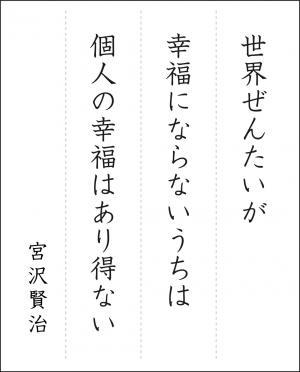 世界ぜんたいが
幸福にならないうちは
個人の幸福はあり得ない
宮沢賢治